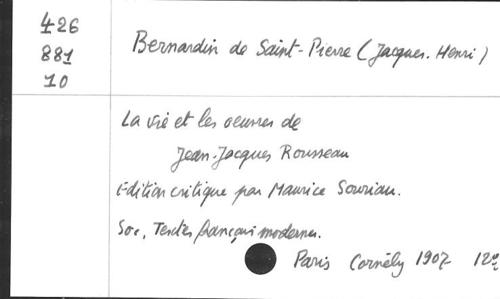 426
881
10
Bernardin de Saint-Pierre (Jacques-Henri)
La vie et les oeuvres de
Jean-Jacques Rousseau
Edition critique par Maurice Souriau.
Soc. Textes français modernes.
Paris Cornély 1907 12°